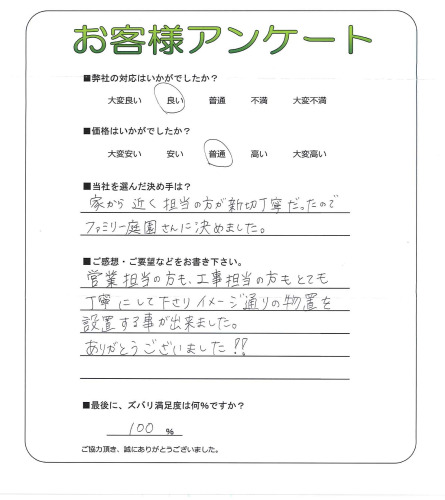 お客様アンケート
■弊社の対応はいかがでしたか?
大変良い 良い 普通 不満 大変不満
■価格はいかがでしたか?
大変安い 安い 普通 高い 大変高い
■当社を選んだ決め手は?
家から近く担当の方が新切丁寧だったので
ファミリー庭園さんに決めました。
■ご感想・ご要望などをお書き下さい。
営業担当の方も、工事担当の方もとても
丁寧にして下さりイメージ通りの物置を
設置する事が出来ました。
ありがとうございました!!
■最後に、ズバリ満足度は何%ですか?
100 %
ご協力頂き、誠にありがとうございました。